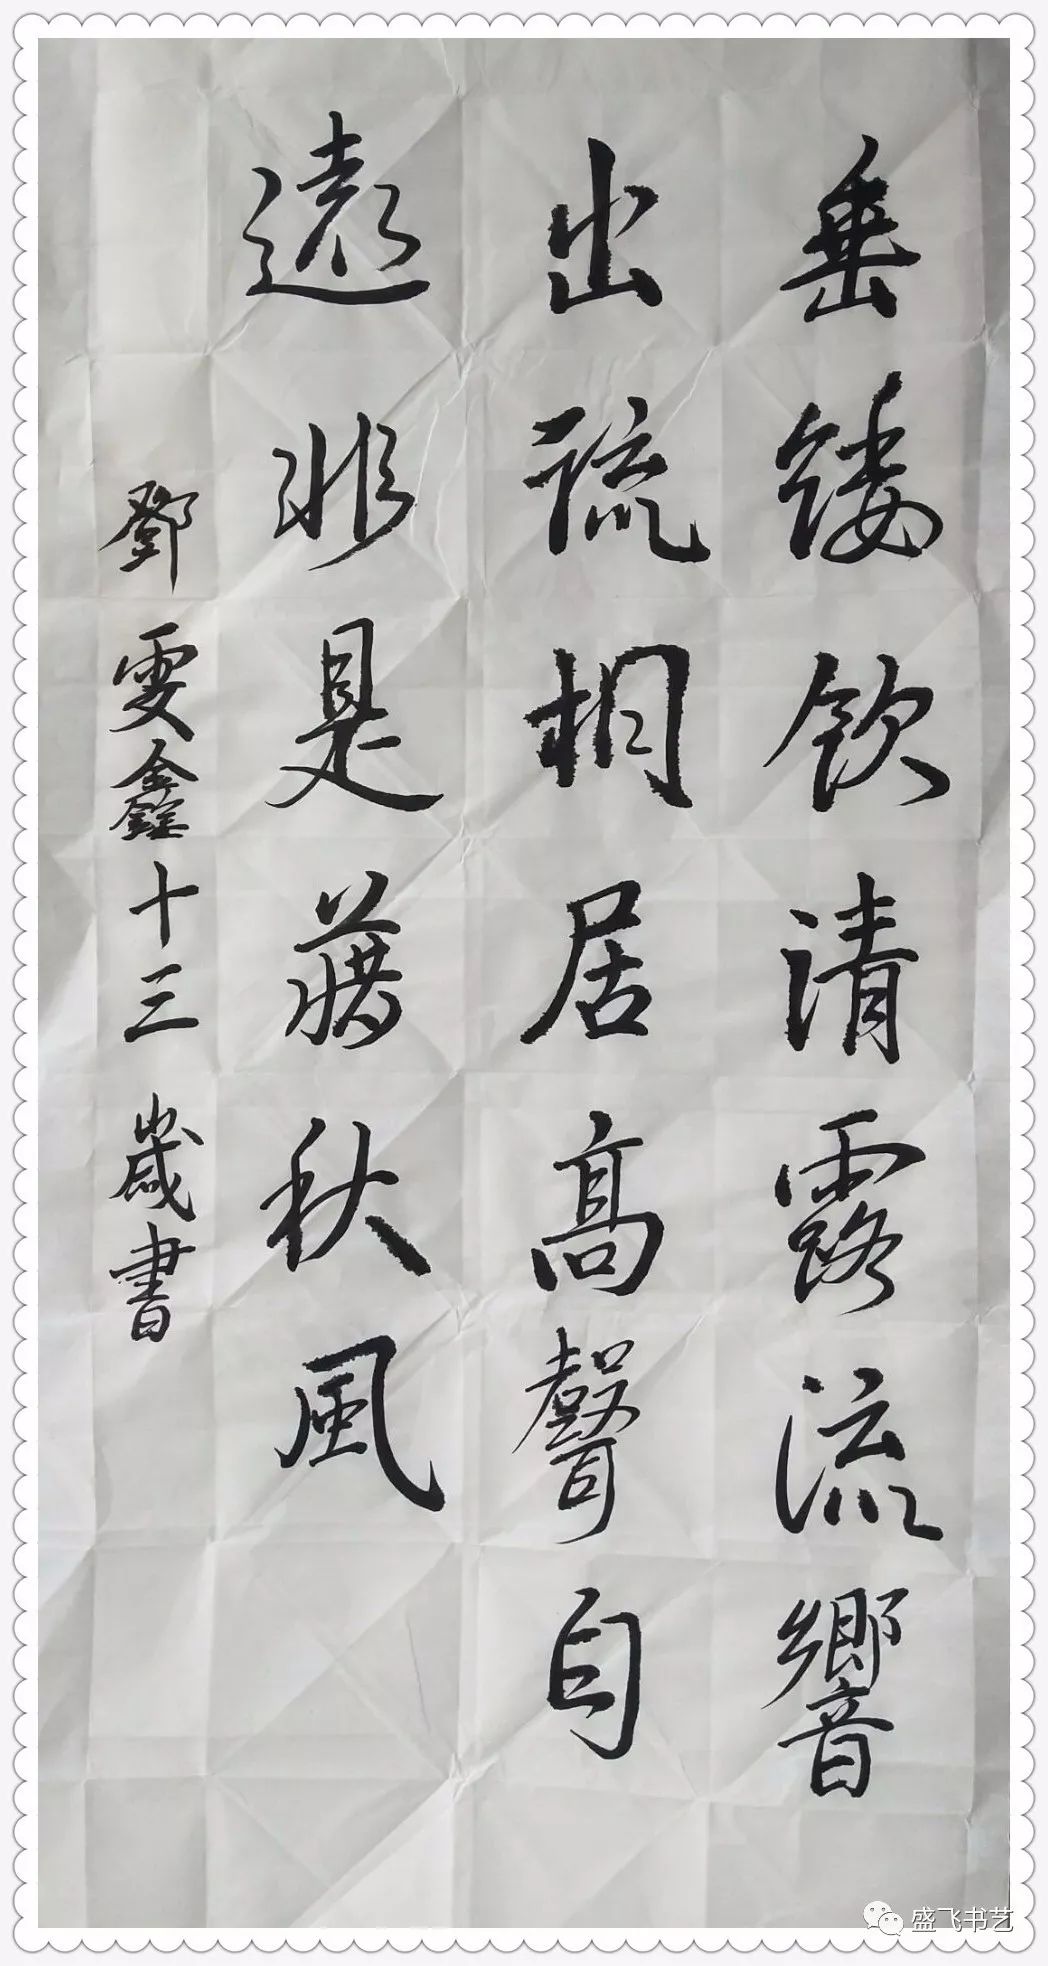 垂緌飲清露流響
出疏桐居高聲自
遠非是藉秋風
鄧雯鑫十三歲書
盛飞书艺